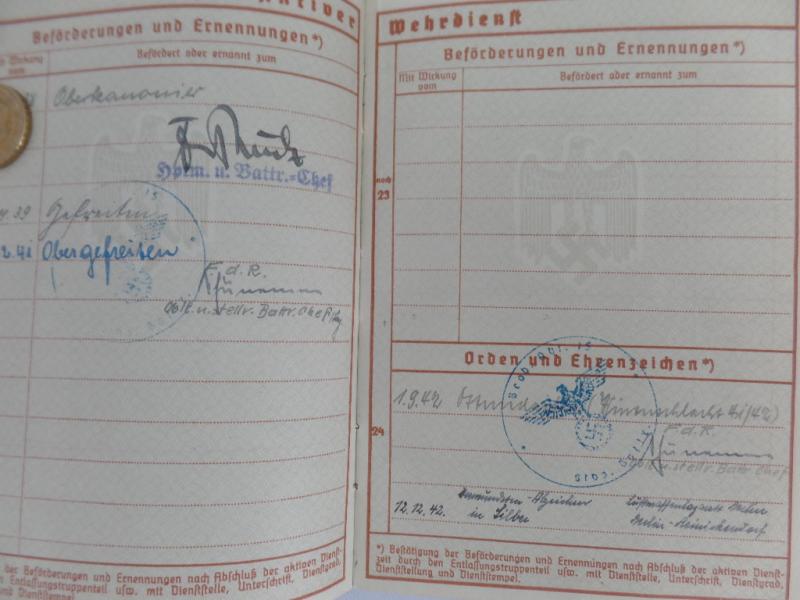 aktiver
Beförderungen und Ernennungen*)
Mit Wirkung vom
Befördert oder ernannt zum
Oberkanonier
Hptm. u. Battr.-Chef
.39 Gefreiten
.41 Obergefreiten
F. d. R.
Oblt. u. stellv. Battr. Chef
Wehrdienst
Beförderungen und Ernennungen*)
Mit Wirkung vom
Befördert oder ernannt zum
noch
23
Orden und Ehrenzeichen*)
1.9.42 (Winterschlacht 41/42)
F.d.R.
Oblt. u. stellv. Battr. Chef
24
12.12.42. Verwundeten-Abzeichen
in Silber
Luftwaffenlazarett Berlin
Berlin-Reinickendorf
der Beförderungen und Ernennungen nach Abschluß der aktiven Dienst-
Entlassungstruppenteil usw. mit Dienststelle, Unterschrift, Dienstgrad,
Dienststempel.
*) Bestätigung der Beförderungen und Ernennungen nach Abschluß der aktiven Dienst-
zeit durch den Entlassungstruppenteil usw. mit Dienststelle, Unterschrift, Dienstgrad,
Dienststellung und Dienststempel.